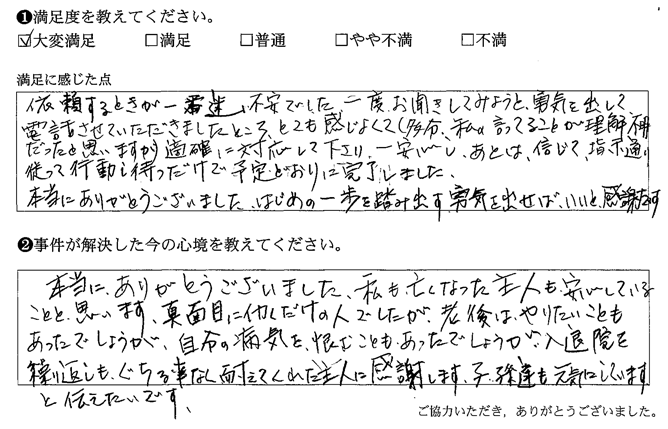 ❶満足度を教えてください。
☑大変満足 □満足 □普通 □やや不満 □不満
満足に感じた点
依頼するときが一番迷い不安でした、一度、お聞きしてみようと、勇気を出して
電話させていただきましたところ、とても感じよくて(多分、私の言ってることが理解不明
だったと思いますが)適確に対応して下さり、一安心し、あとは、信じて、指示通り
従って行動し待つだけで予定どおりに完了しました、
本当にありがとうございました、はじめの一歩を踏み出す勇気を出せば、いいと、感謝
❷事件が解決した今の心境を教えてください。
本当に、ありがとうございました、私も亡くなった主人も、安心している
ことと、思います、真面目に働くだけの人でしたが、老後は、やりたいことも
あったでしょうが、自分の病気を、恨むこともあったでしょうが、入退院を
繰り返しも、ぐちる事なく耐えてくれた主人に感謝します、子、孫達も元気にしています
と伝えたいです、
ご協力いただき，ありがとうございました。